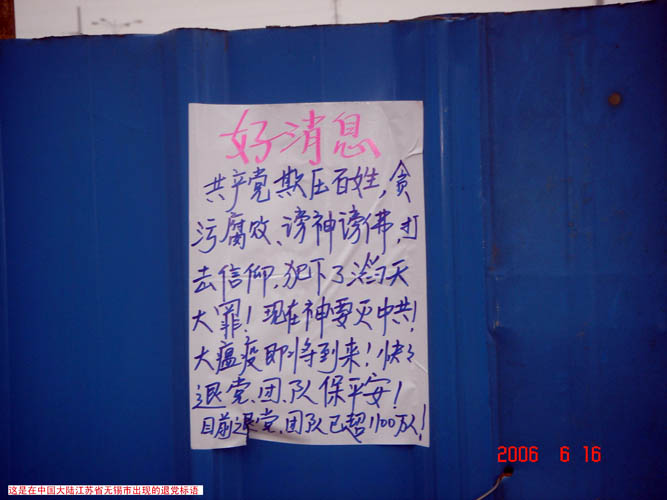 好消息
共产党欺压百姓,贪
污腐败、谤神谤佛,打
去信仰,犯下了滔天
大罪!现在神要灭中共!
大瘟疫即将到来!快了
退党、团、队保平安!
目前退党、团队已超1100万人!
2006 6 16
这是在中国大陆江苏省无锡市出现的退党标语